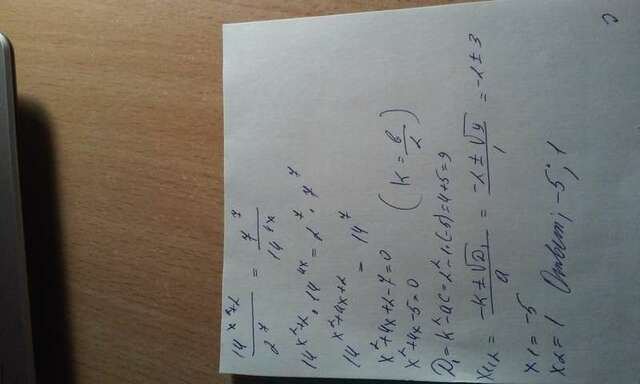 14^(x²+2) / 2^7 = 7^7 / 14^(4x)
14^(x²+2) · 14^(4x) = 2^7 · 7^7
14^(x²+4x+2) = 14^7
x²+4x+2-7=0
x²+4x-5=0 (k = b/2)
D₁=k²-ac=2²-1·(-5)=4+5=9
x₁,₂ = (-k±√D₁)/a = (-2±√9)/1 = -2±3
x1 = -5
x2 = 1 Ответ; -5; 1